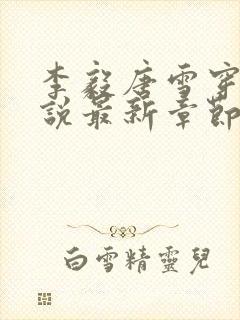 李毅唐雪穿
說最新章節
白雪精靈兒